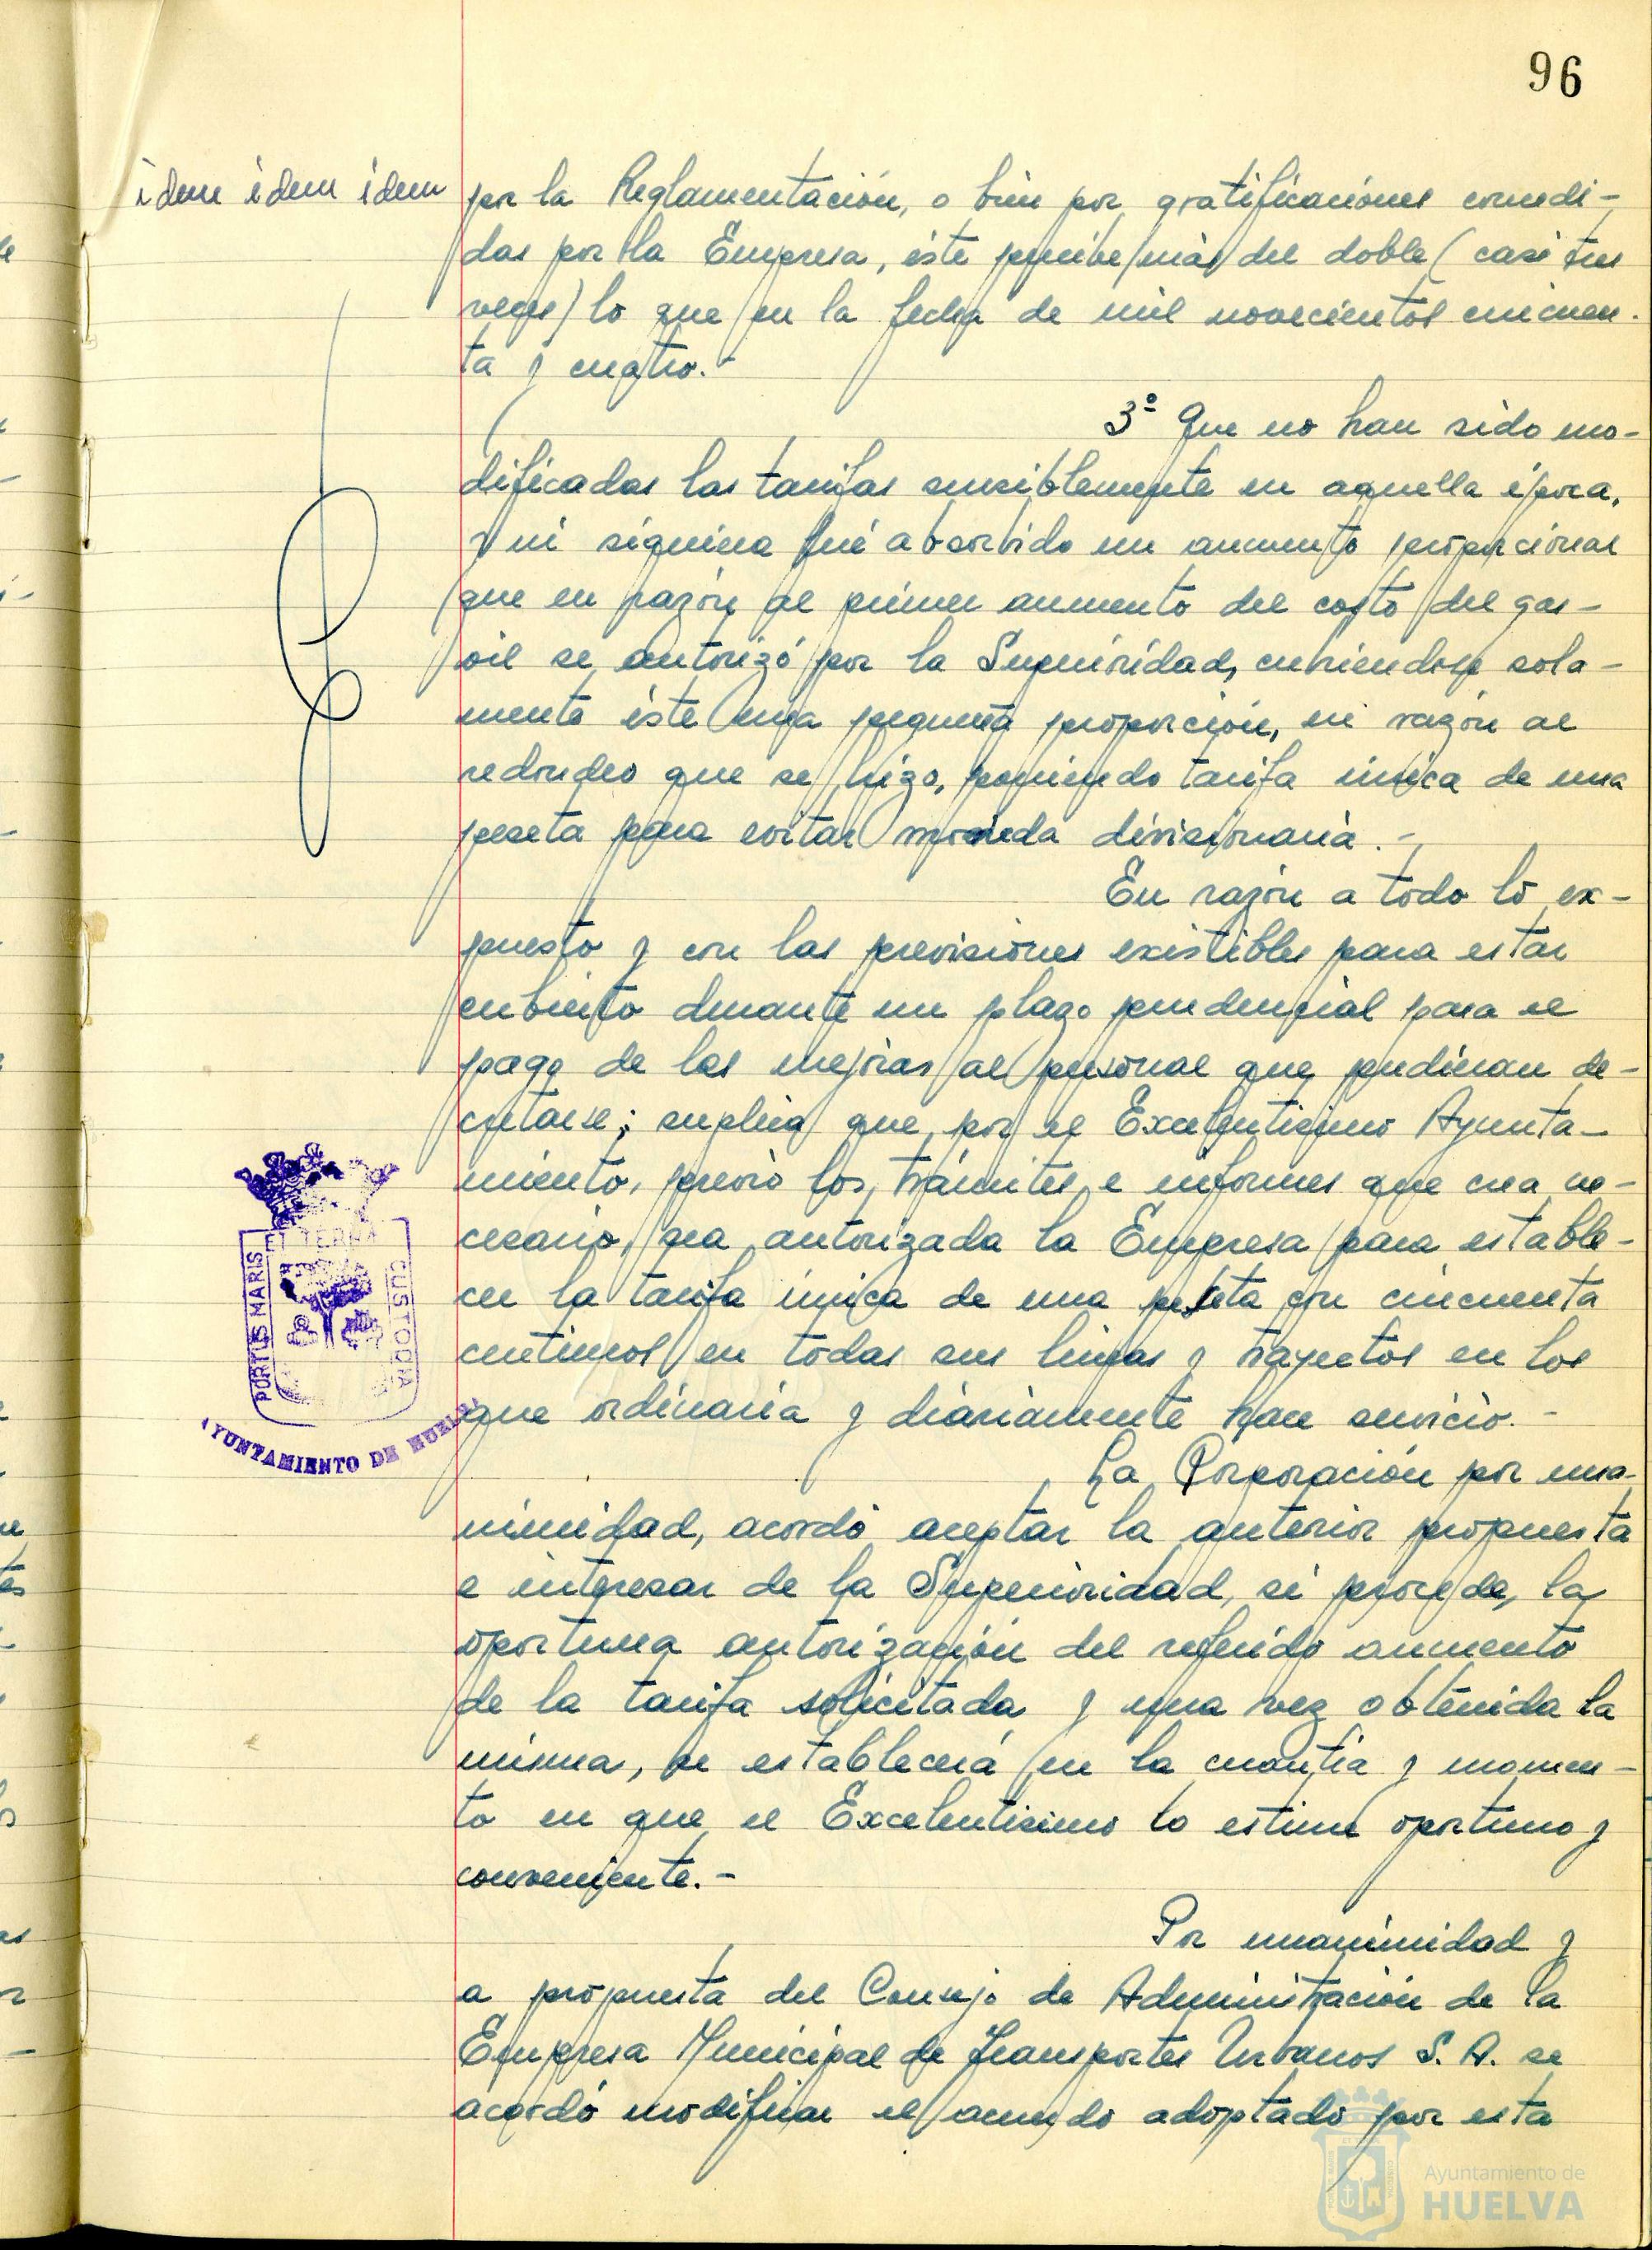 96
idem idem idem
por la Reglamentación, o bien por gratificaciones concedi-
das por la Empresa, éste percibe más del doble (casi tres
veces) lo que en la fecha de mil novecientos cincuen-
ta y cuatro.-
3º Que no han sido mo-
dificadas las tarifas sensiblemente en aquella época,
y ni siquiera fué absorbido un aumento proporcional
que en razón al primer aumento del costo del gas-
oil se autorizó por la Superioridad, cubriendose sola-
mente éste una pequeña proporción, en razón al
redondeo que se hizo, poniendo tarifa única de una
peseta para evitar moneda divisionaria.-
En razón a todo lo ex-
puesto y con las previsiones existibles para estar
cubierto durante un plazo prudencial para el
pago de las mejoras al personal que pudieran de-
cretarse; suplica que por el Excelentisimo Ayunta-
miento, previo los trámites e informes que crea ne-
cesario, sea autorizada la Empresa para estable-
cer la tarifa única de una peseta con cincuenta
centimos en todas sus lineas y trayectos en los
que ordinaria y diariamente hace servicio.-
La Corporación por una-
nimidad, acordó aceptar la anterior propuesta
e interesar de la Superioridad, si procede, la
oportuna autorización del referido aumento
de la tarifa solicitada y una vez obtenida la
misma, se establecerá en la cuantía y momen-
to en que el Excelentisimo lo estime oportuno y
conveniente.-
Por unanimidad y
a propuesta del Consejo de Administración de la
Empresa Municipal de Transportes Urbanos S. A. se
acordó modificar el acuerdo adoptado por esta
PORTUS MARIS
ET TERRA
CUSTODIA
AYUNTAMIENTO DE HUELVA
Ayuntamiento de
HUELVA